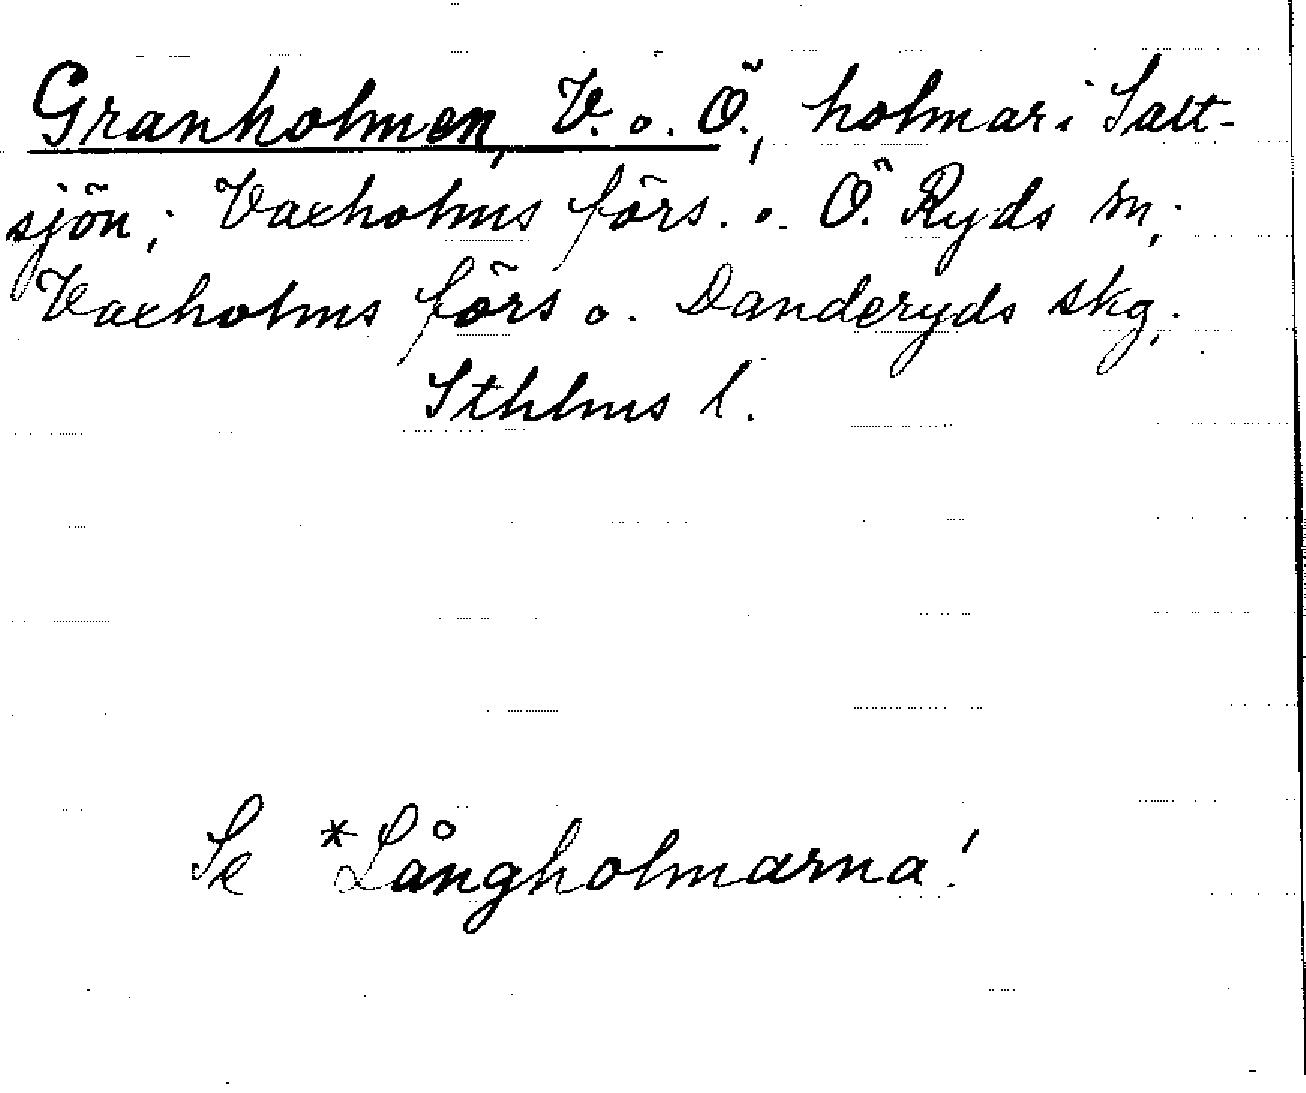 Granholmen, V. o. Ö., holmar i Salt-
sjön; Vaxholms förs. o. Ö. Ryds sn;
Vaxholms förs o. Danderyds skg;
Sthlms l.
Se *Långholmarna!